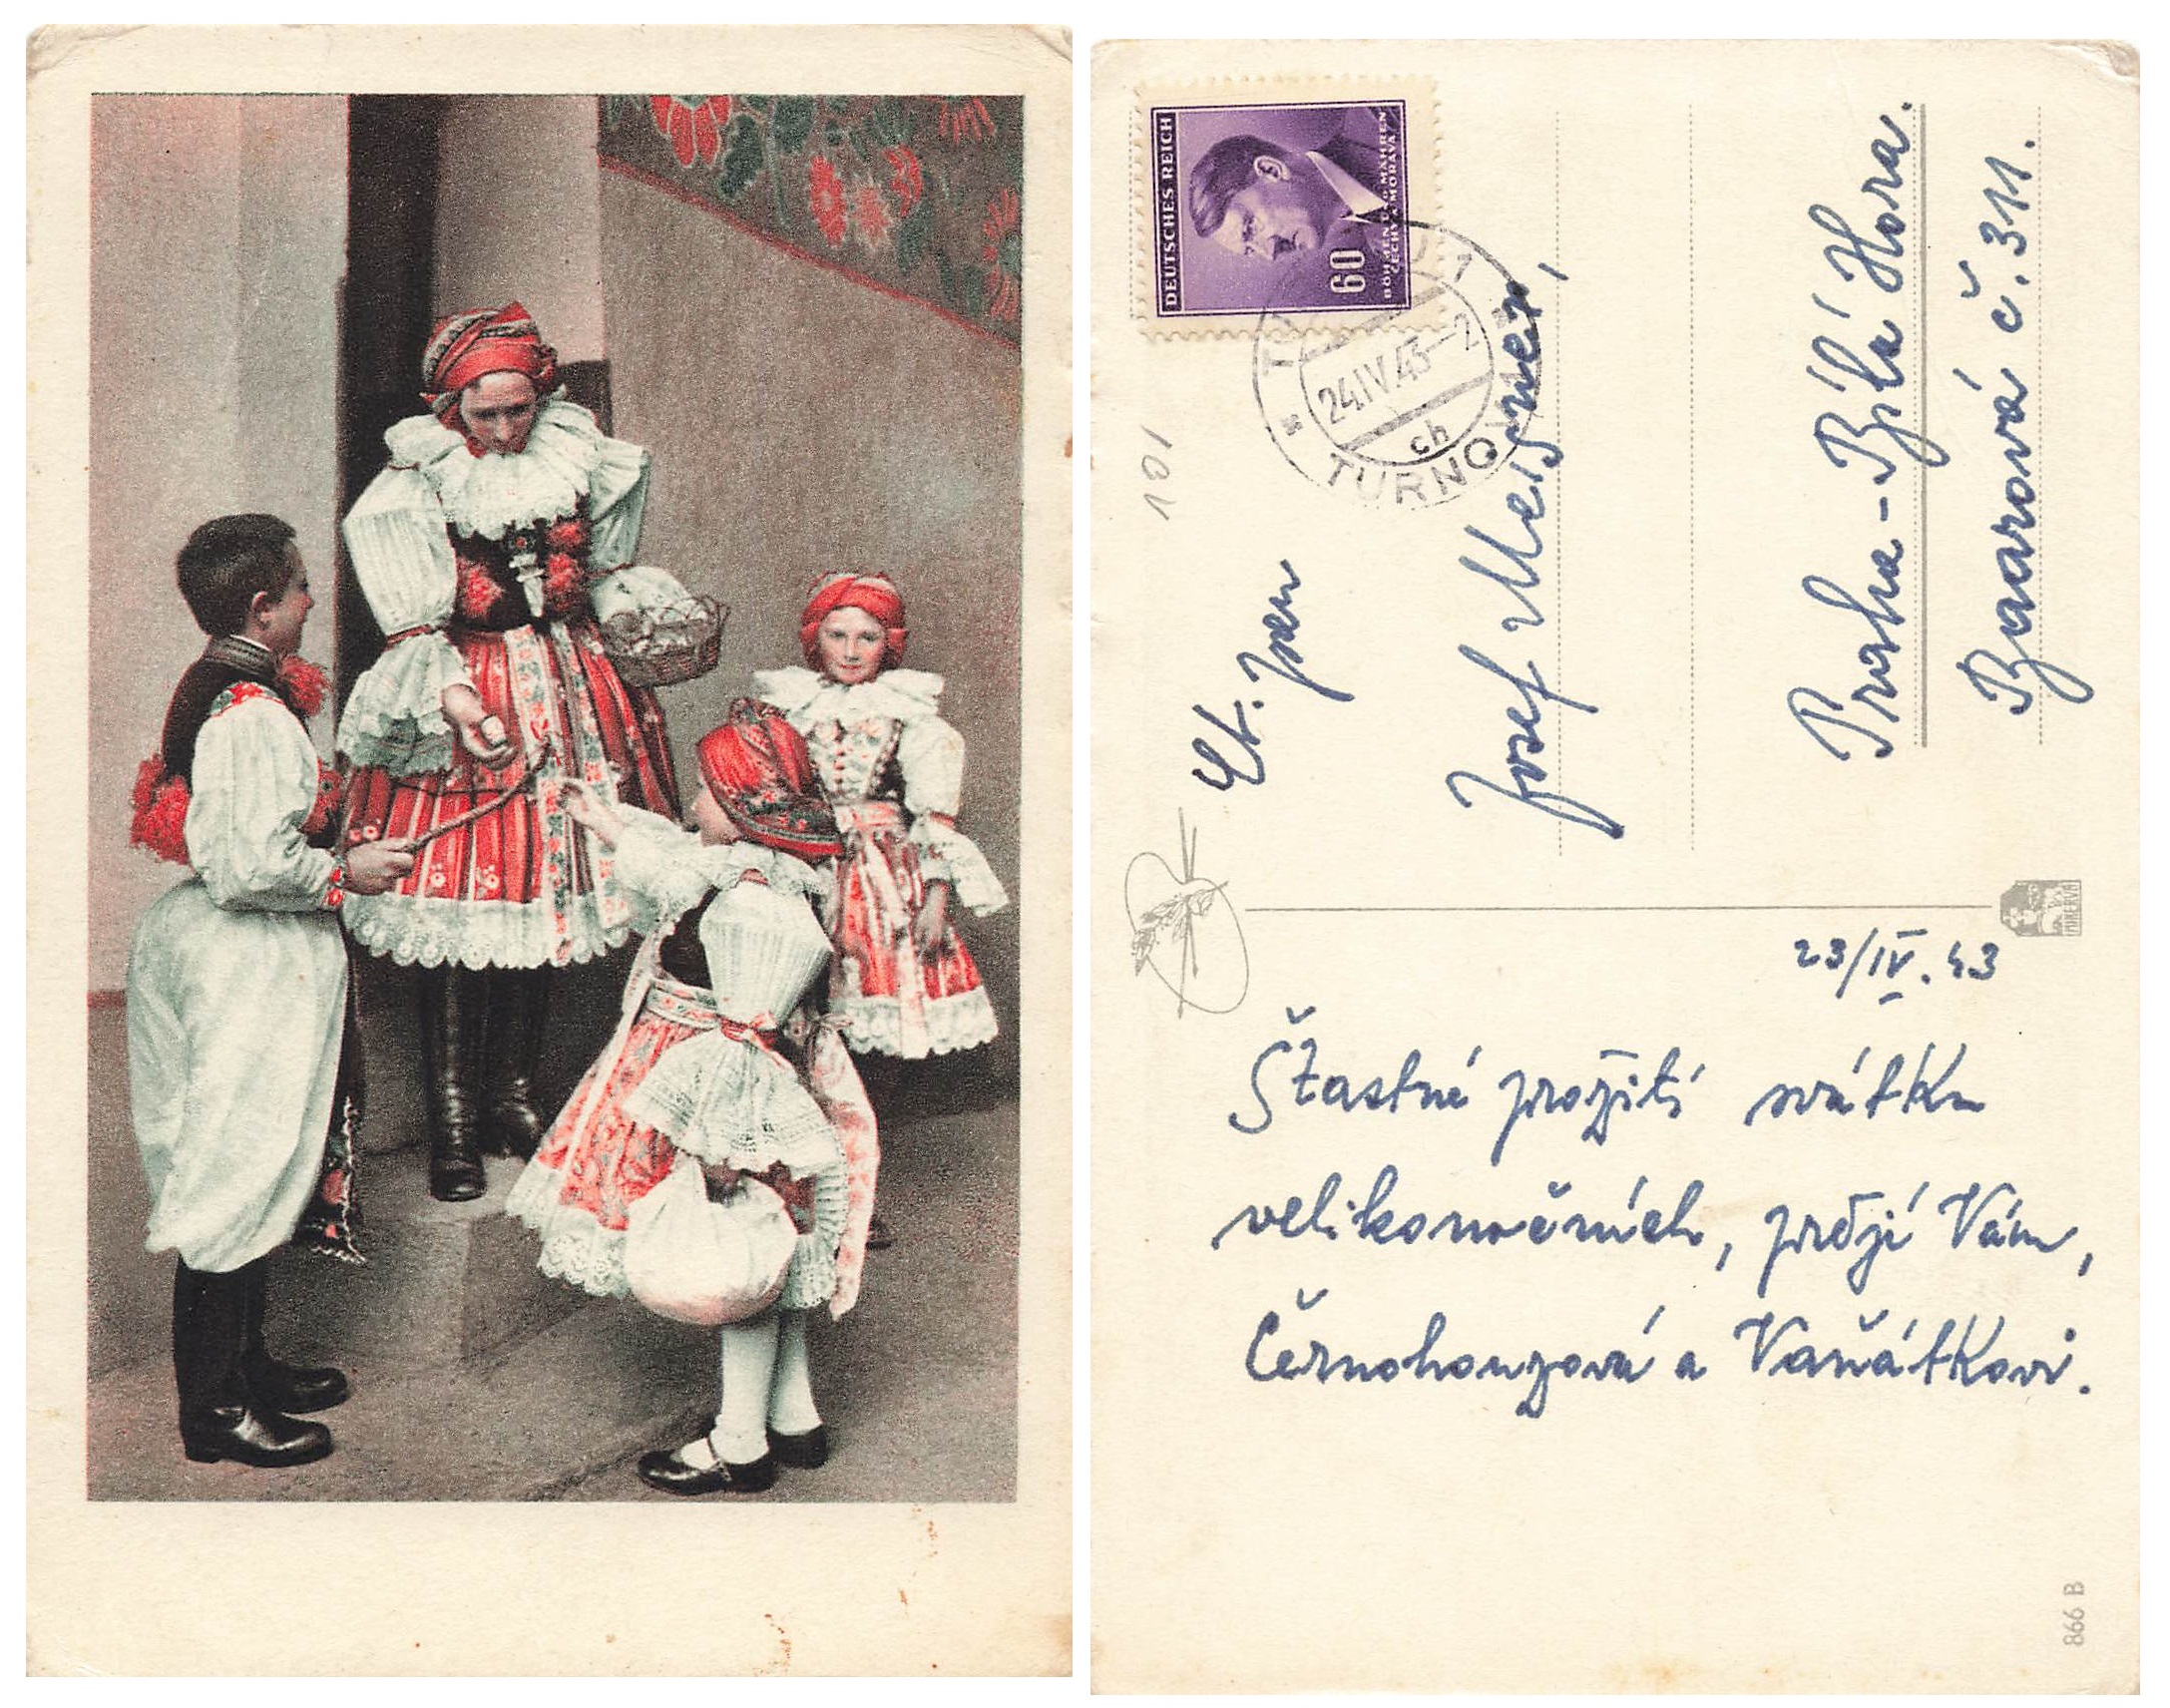 DEUTSCHES REICH
60
BÖHMEN UND MÄHREN
ČECHY A MORAVA
24.IV.43-2
ch
TURNOV
101
Ct. pan
Josef
Praha - Bílá Hora.
č. 311.
MINERVA
23/IV. 43
Šťastné prožití svátků
velikonočních, přejí Vám,
Černohouzová a Vaňátkovi.
866 B